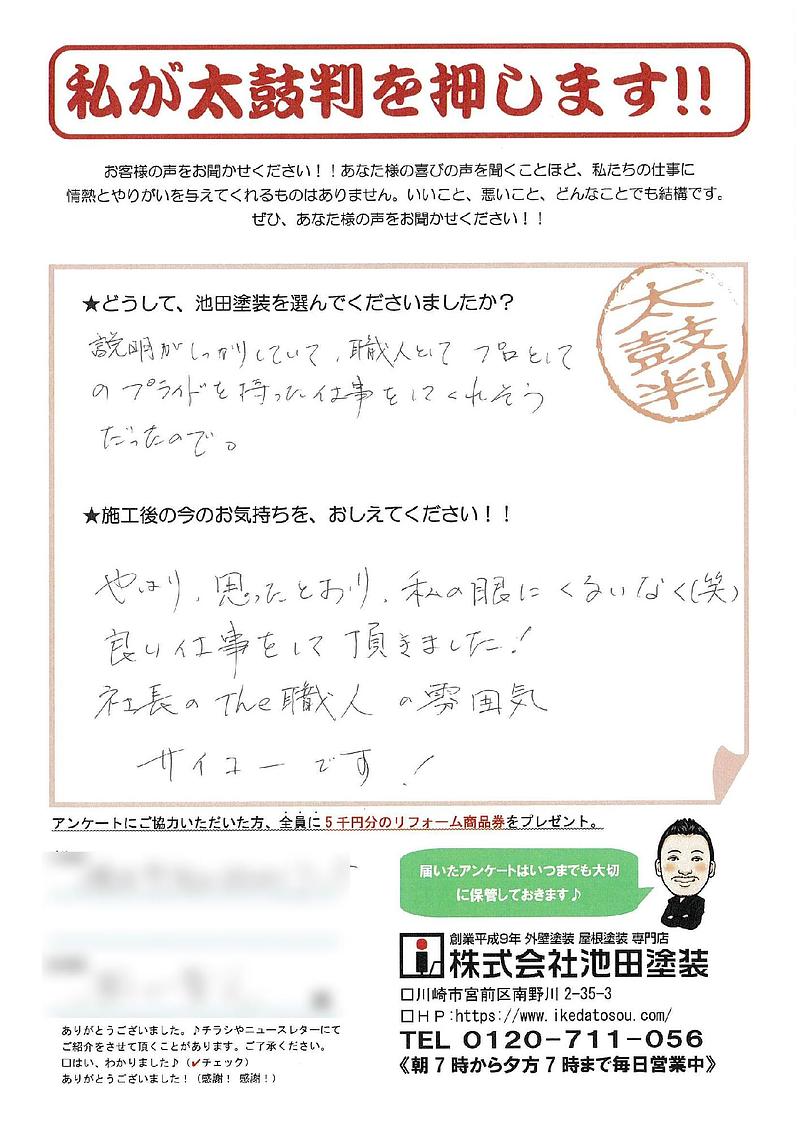 私が太鼓判を押します!!
お客様の声をお聞かせください！！あなた様の喜びの声を聞くことほど、私たちの仕事に
情熱とやりがいを与えてくれるものはありません。いいこと、悪いこと、どんなことでも結構です。
ぜひ、あなた様の声をお聞かせください！！
★どうして、池田塗装を選んでくださいましたか？
太鼓判
説明がしっかりしていて、職人として プロとして
の プライドを持った仕事をしてくれそう
だったので。
★施工後の今のお気持ちを、おしえてください！！
やはり、思ったとおり、私の眼に くるいなく(笑)
良い仕事をして頂きました！
社長の The 職人 の雰囲気
サイコーです！
アンケートにご協力いただいた方、全員に5千円分のリフォーム商品券をプレゼント。
届いたアンケートはいつまでも大切
に保管しておきます♪
創業平成9年 外壁塗装 屋根塗装 専門店
株式会社池田塗装
□川崎市宮前区南野川 2-35-3
□ＨＰ:https://www.ikedatosou.com/
TEL 0120-711-056
《朝７時から夕方７時まで毎日営業中》
ありがとうございました。♪チラシやニュースレターにて
ご紹介をさせて頂くことがあります。ご了承ください。
□はい、わかりました♪（✓チェック）
ありがとうございました！（感謝！ 感謝！）